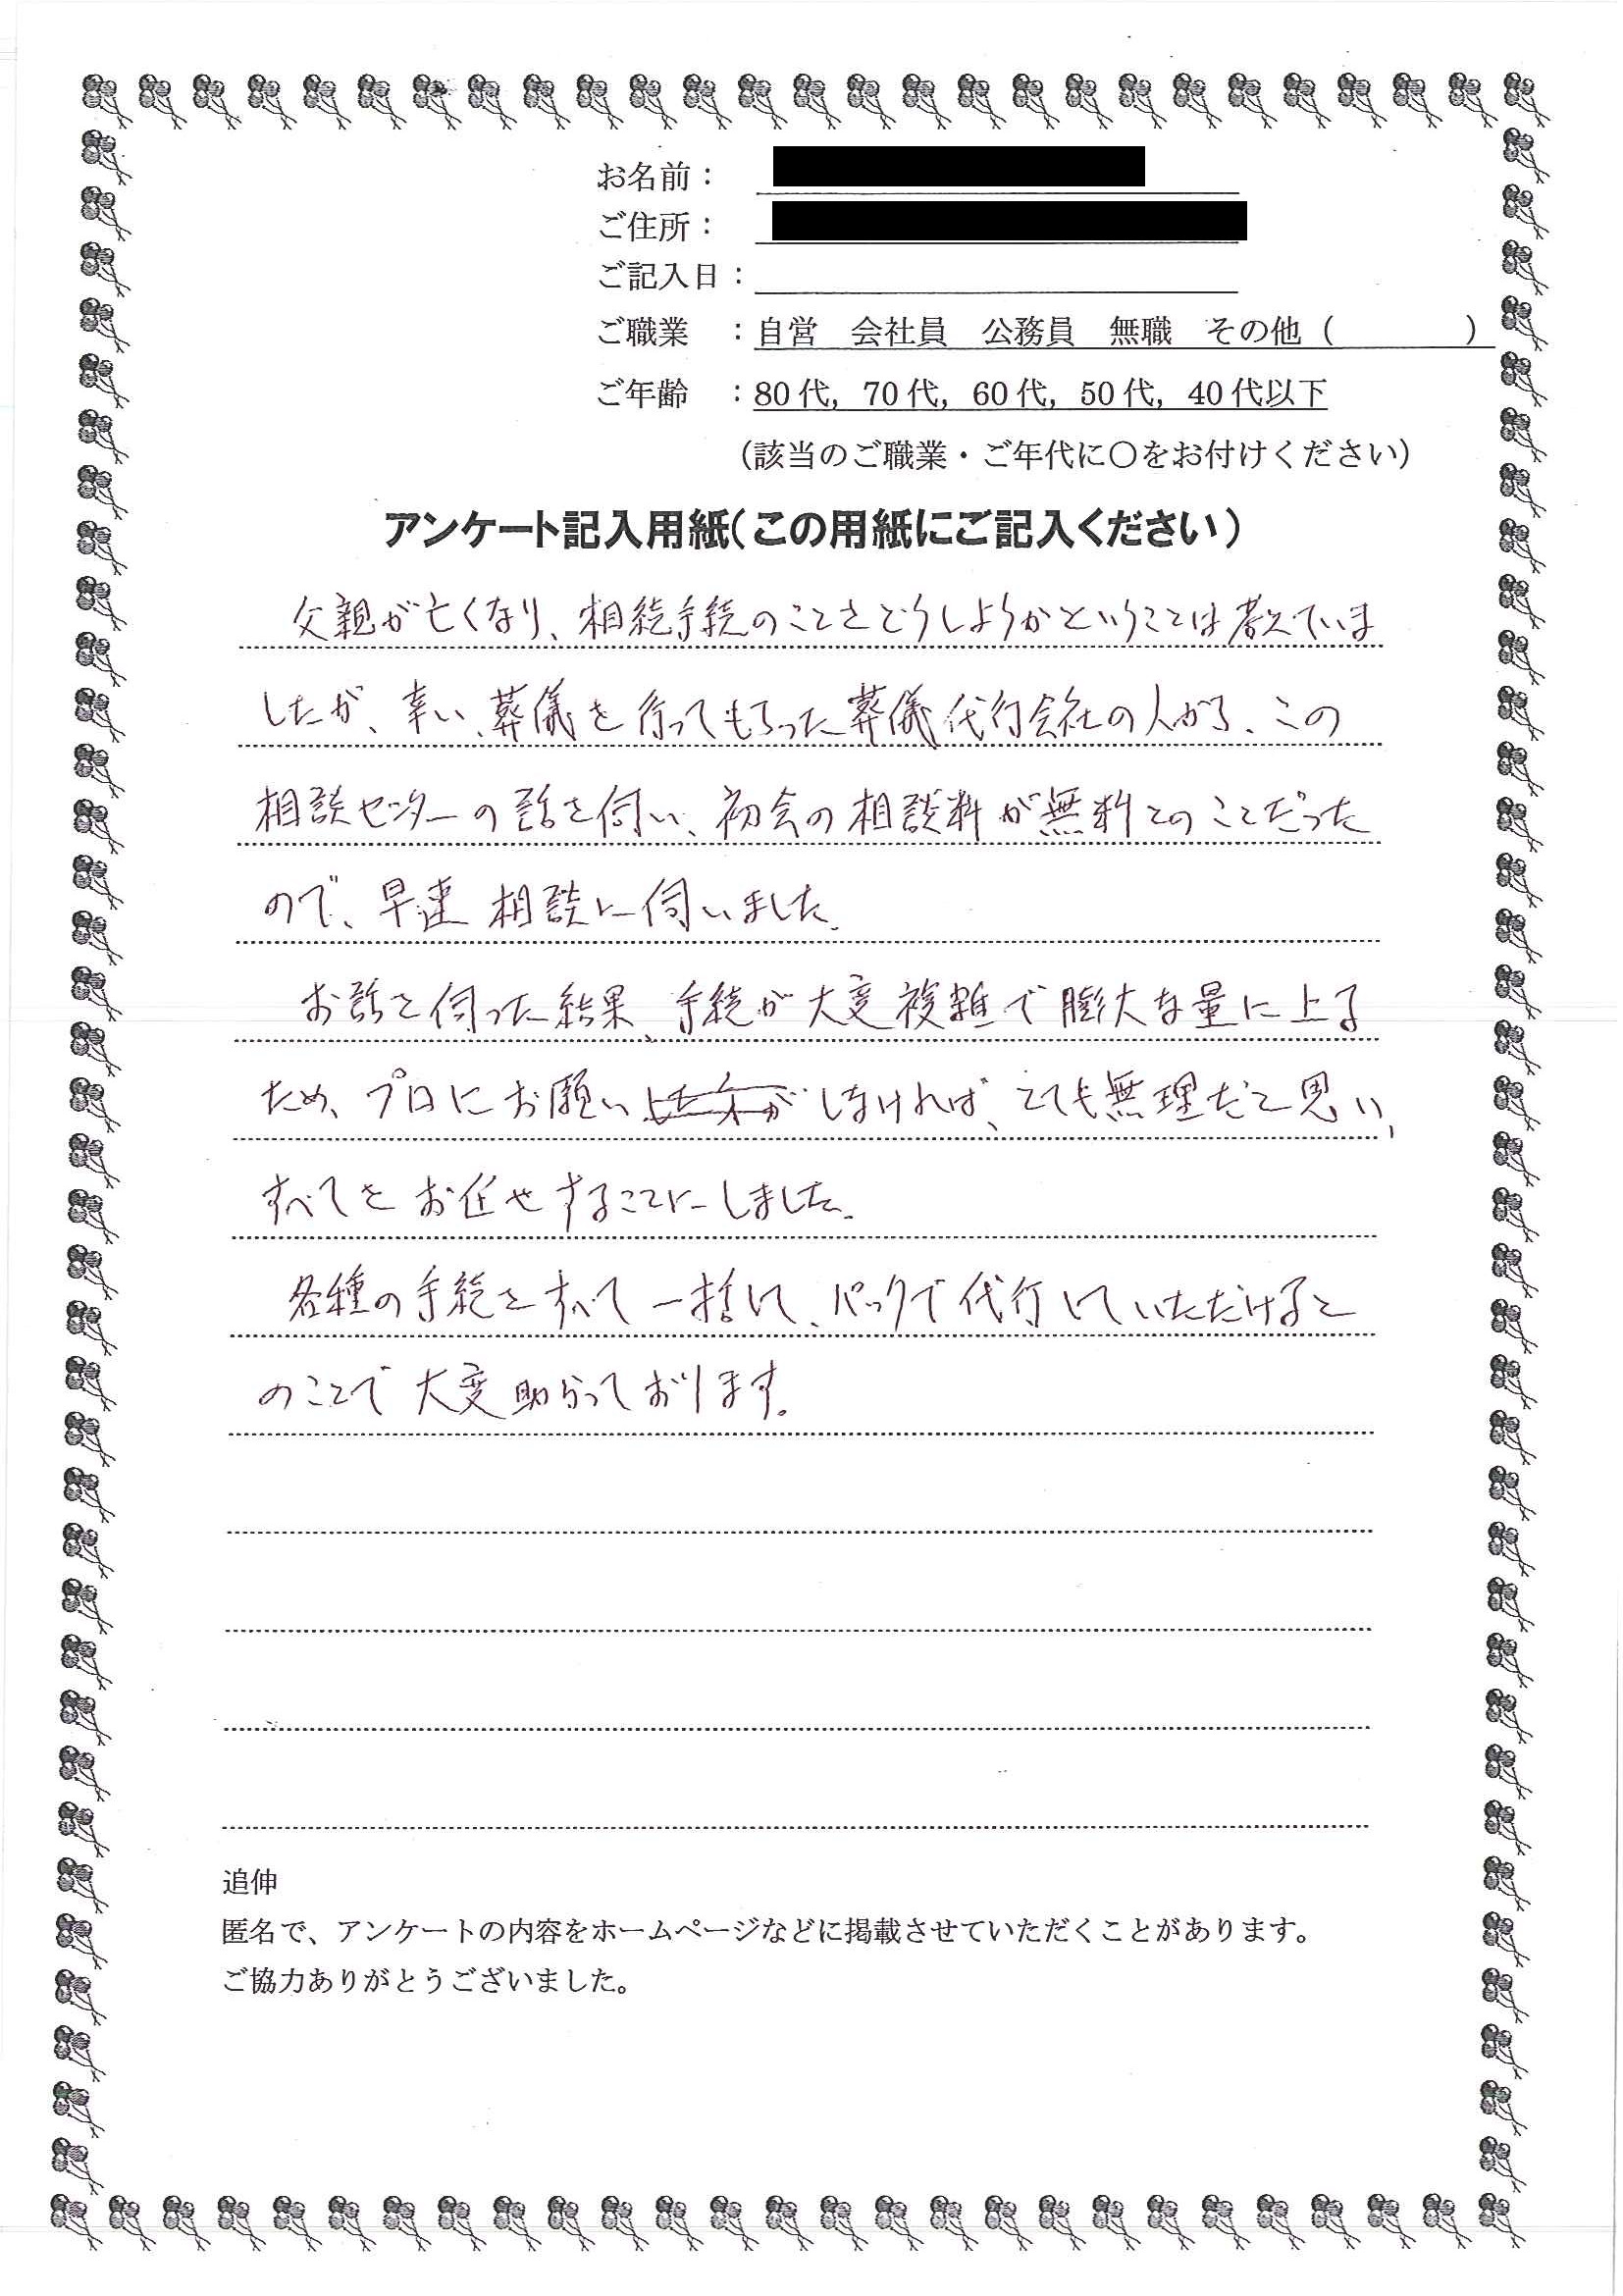 お名前：
ご住所：
ご記入日：
ご職業　：自営　会社員　公務員　無職　その他（　　　　）
ご年齢　：80代，70代，60代，50代，40代以下
（該当のご職業・ご年代に〇をお付けください）
アンケート記入用紙（この用紙にご記入ください）
父親が亡くなり、相続手続のことをどうしようかということは考えていま
したが、幸い、葬儀を行ってもらった葬儀代行会社の人から、この
相談センターの話を伺い、初会の相談料が無料とのことだった
ので、早速相談に伺いました。
お話を伺った結果、手続が大変複雑で膨大な量に上る
ため、プロにお願いしなければ、とても無理だと思い、
すべてをお任せすることにしました。
各種の手続をすべて一括して、パックで代行していただけると
のことで大変助かっております。
追伸
匿名で、アンケートの内容をホームページなどに掲載させていただくことがあります。
ご協力ありがとうございました。